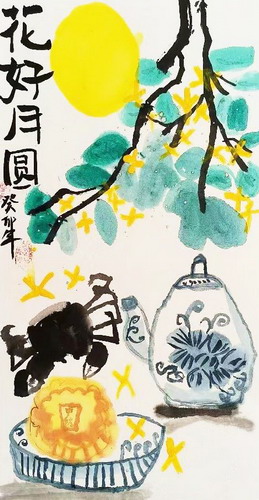 花好月圆
癸卯年